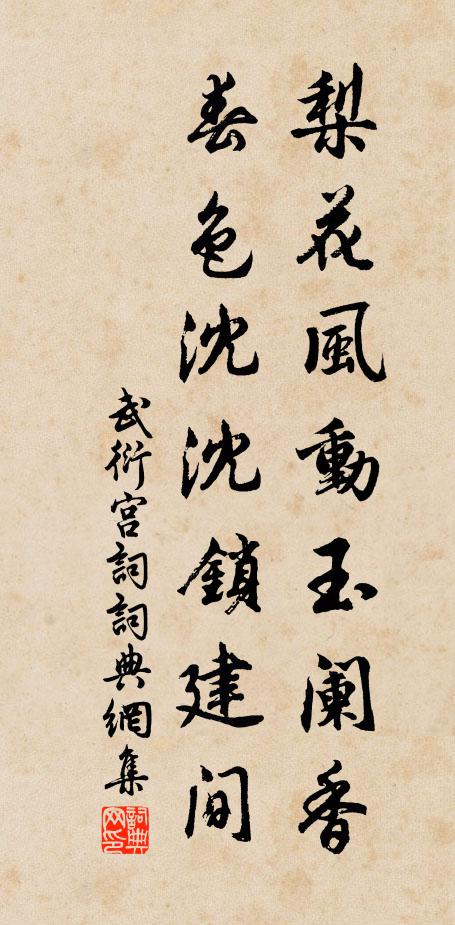 梨花風動玉阑香
春色沈沈鎖建间
武衍宫詞詞典網集
詞典网印